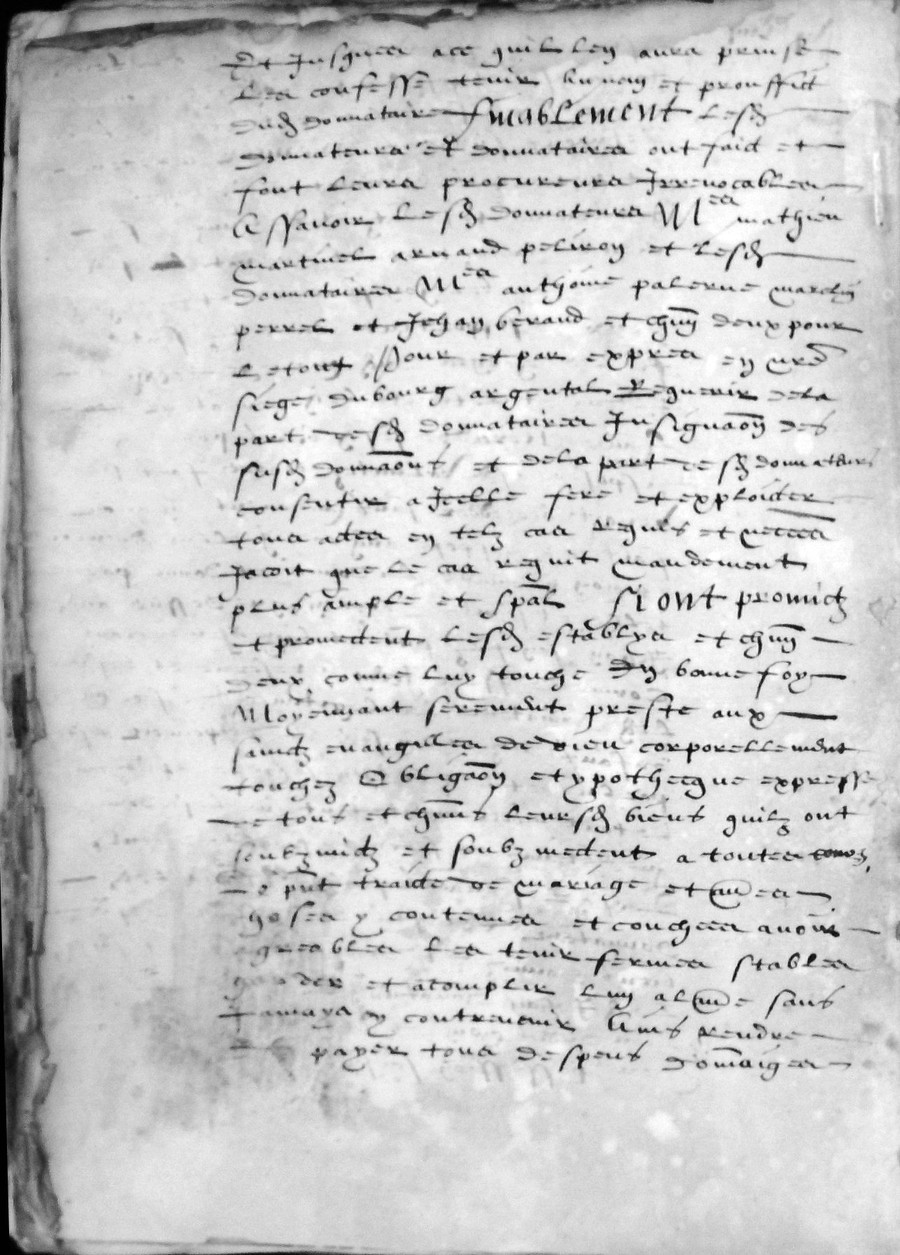 Et Jusques ace quil len aura prinse
Les confesse tenir au nom et prouffict
dud donnataire finablement lesd
donnateurs et donnataires ont faict et
font leurs procureurs Irrevocables
Assavoir lesd donnateurs Mes mathieu
martinel arnaud peliron et lesd
donnataires Mes anthoine palerne marclin
perrel et Jehan beraud et chun deux pour
letout pour et par expres en nre
siege dubourg argental Requerir dela
part desd donnataires Insignuaon des
susd donnaons et dela part desd donnateurs
consentir a Icelle fere et exploicter
tous actes en telz cas requis et necces
Jacoit que le cas requit mandement
plus ample et spal si ont promictz
et promectent lesd establys et chun
deux comme luy touche En bonne foy
Moyennant serement preste aux
sainctz evangilles de dieu corporellement
touchez Obligaon et ypothecque expresse
de tous et chuns leursd biens quilz ont
soubzmictz et soubzmectent a toutes cours
Le pnt traicte de mariage et aues
choses y contenues et couchees avoir
agreables les tenir fermes stables
garder et acomplir lun al aue sans
Jamays y contrevenir Ains rendre
et payer tous despens domaiges